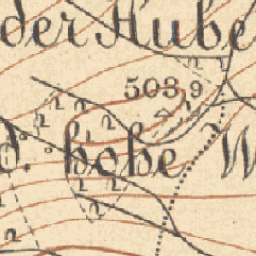 der Hube
503,9
d. hohe W